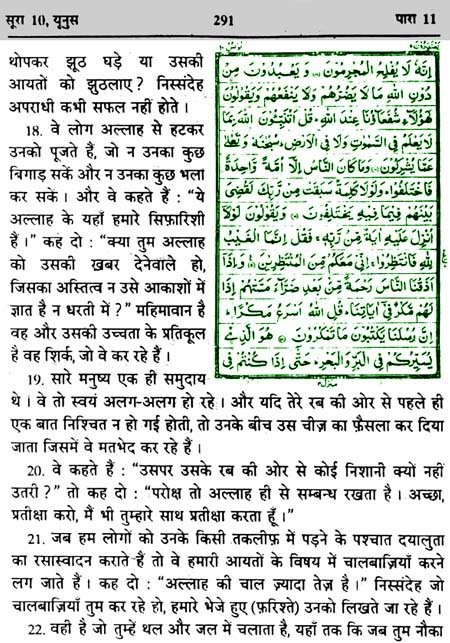 सूरा 10, यूनुस 291 पारा 11
थोपकर झूठ घड़े या उसकी
आयतों को झुठलाए? निस्संदेह
अपराधी कभी सफल नहीं होते।
18. वे लोग अल्लाह से हटकर
उनको पूजते हैं, जो न उनका कुछ
बिगाड़ सकें और न उनका कुछ भला
कर सकें। और वे कहते हैं : “ये
अल्लाह के यहाँ हमारे सिफ़ारिशी
हैं।” कह दो : “क्या तुम अल्लाह
को उसकी ख़बर देनेवाले हो,
जिसका अस्तित्व न उसे आकाशों में
ज्ञात है न धरती में?” महिमावान है
वह और उसकी उच्चता के प्रतिकूल
है वह शिर्क, जो वे कर रहे हैं।
إِنَّهُ لَا يُفْلِحُ الْمُجْرِمُونَ وَيَعْبُدُونَ مِنْ
دُونِ اللهِ مَا لَا يَضُرُّهُمْ وَلَا يَنْفَعُهُمْ وَيَقُولُونَ
هَٰؤُلَاءِ شُفَعَاؤُنَا عِنْدَ اللهِ قُلْ أَتُنَبِّئُونَ اللهَ بِمَا
لَا يَعْلَمُ فِي السَّمَٰوَٰتِ وَلَا فِي الْأَرْضِ سُبْحَٰنَهُ وَتَعَٰلَىٰ
عَمَّا يُشْرِكُونَ وَمَا كَانَ النَّاسُ إِلَّا أُمَّةً وَّاحِدَةً
فَاخْتَلَفُوا وَلَوْلَا كَلِمَةٌ سَبَقَتْ مِنْ رَّبِّكَ لَقُضِيَ
بَيْنَهُمْ فِيمَا فِيهِ يَخْتَلِفُونَ وَيَقُولُونَ لَوْلَا
أُنْزِلَ عَلَيْهِ آيَةٌ مِنْ رَّبِّهِ فَقُلْ إِنَّمَا الْغَيْبُ
لِلهِ فَانْتَظِرُوا إِنِّي مَعَكُمْ مِنَ الْمُنْتَظِرِينَ وَإِذَا
أَذَقْنَا النَّاسَ رَحْمَةً مِّنْ بَعْدِ ضَرَّاءَ مَسَّتْهُمْ إِذَا
لَهُمْ مَّكْرٌ فِي آيَاتِنَا قُلِ اللهُ أَسْرَعُ مَكْرًا
إِنَّ رُسُلَنَا يَكْتُبُونَ مَا تَمْكُرُونَ هُوَ الَّذِي
يُسَيِّرُكُمْ فِي الْبَرِّ وَالْبَحْرِ حَتَّىٰ إِذَا كُنْتُمْ فِي
19. सारे मनुष्य एक ही समुदाय
थे। वे तो स्वयं अलग-अलग हो रहे। और यदि तेरे रब की ओर से पहले ही
एक बात निश्चित न हो गई होती, तो उनके बीच उस चीज़ का फ़ैसला कर दिया
जाता जिसमें वे मतभेद कर रहे हैं।
20. वे कहते हैं : “उसपर उसके रब की ओर से कोई निशानी क्यों नहीं
उतरी?” तो कह दो : “परोक्ष तो अल्लाह ही से सम्बन्ध रखता है। अच्छा,
प्रतीक्षा करो, मैं भी तुम्हारे साथ प्रतीक्षा करता हूँ।”
21. जब हम लोगों को उनके किसी तकलीफ़ में पड़ने के पश्चात दयालुता
का रसास्वादन कराते हैं तो वे हमारी आयतों के विषय में चालबाज़ियाँ करने
लग जाते हैं। कह दो : “अल्लाह की चाल ज़्यादा तेज़ है।” निस्संदेह जो
चालबाज़ियाँ तुम कर रहे हो, हमारे भेजे हुए (फ़रिश्ते) उनको लिखते जा रहे हैं।
22. वही है जो तुम्हें थल और जल में चलाता है, यहाँ तक कि जब तुम नौका